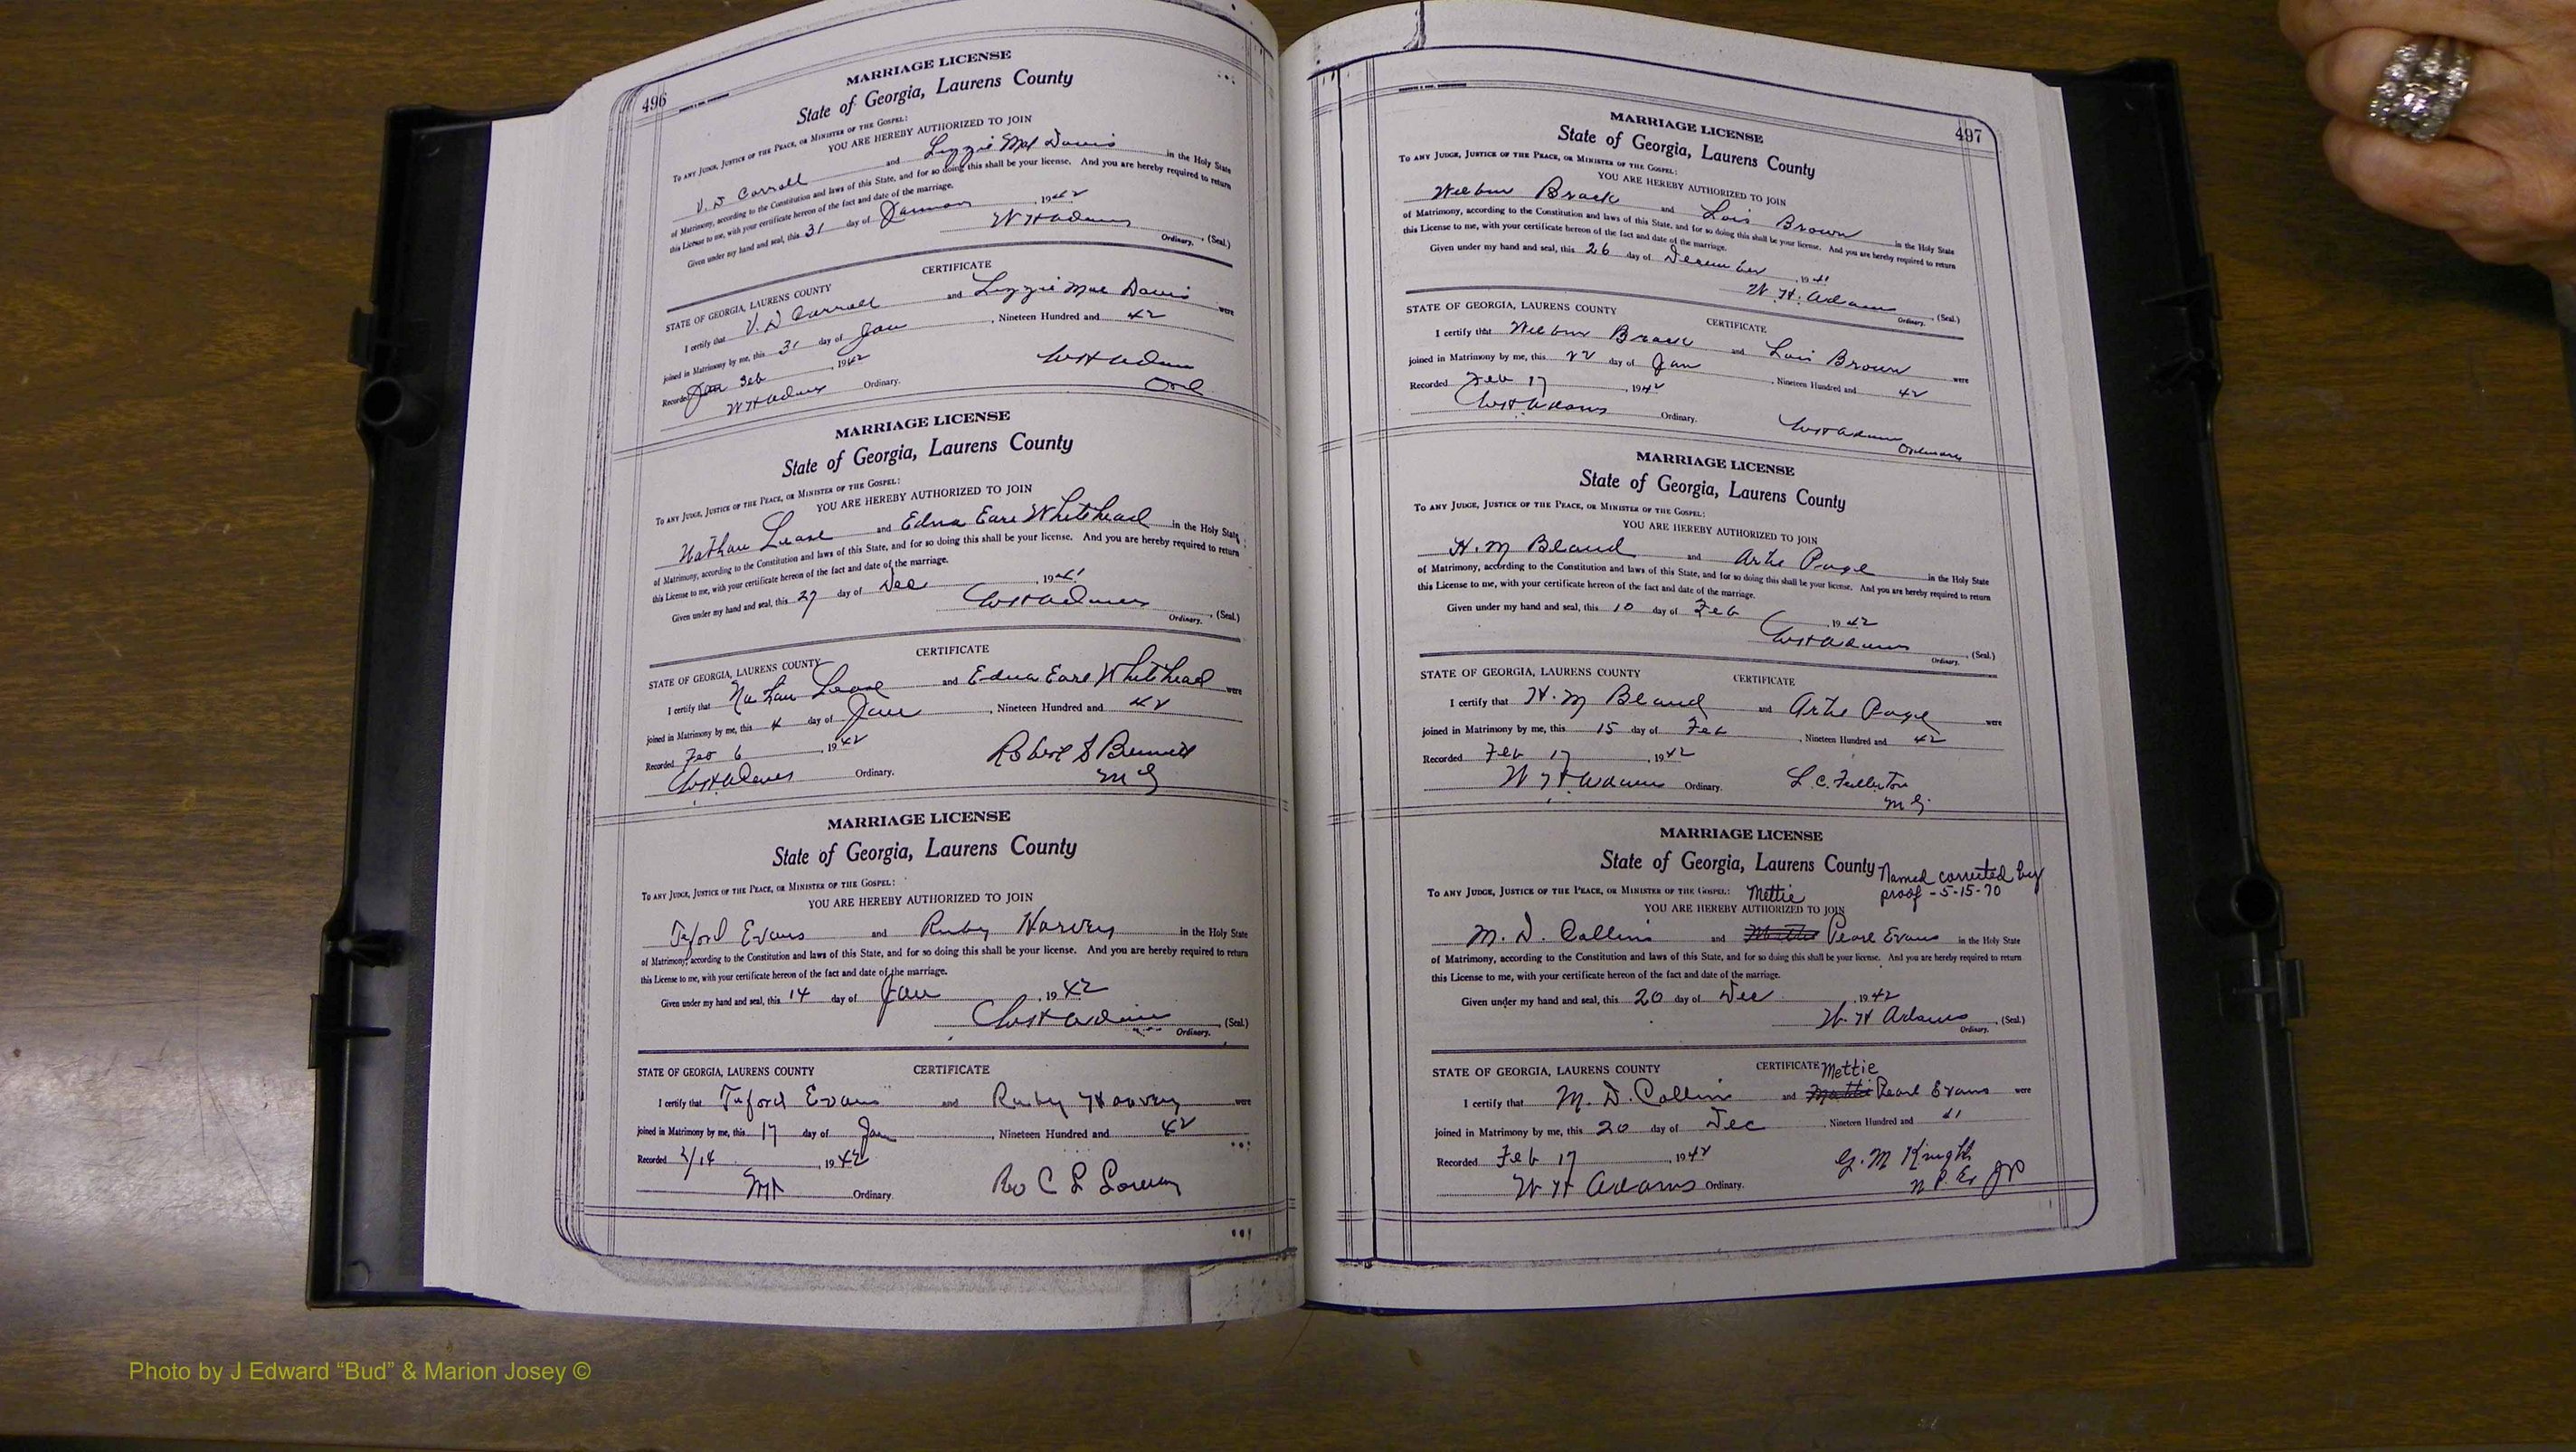 496
MARRIAGE LICENSE
State of Georgia, Laurens County
TO ANY JUDGE, JUSTICE OF THE PEACE, OR MINISTER OF THE GOSPEL:
YOU ARE HEREBY AUTHORIZED TO JOIN
V. D Carroll and Lizzie Mae Davis in the Holy State
of Matrimony, according to the Constitution and laws of this State, and for so doing this shall be your license. And you are hereby required to return
this License to me, with your certificate hereon of the fact and date of the marriage.
Given under my hand and seal, this 31 day of January, 1942
W H Adams, (Seal.)
Ordinary.
CERTIFICATE
STATE OF GEORGIA, LAURENS COUNTY
I certify that V. D Carroll and Lizzie Mae Davis were
joined in Matrimony by me, this 31 day of Jan, Nineteen Hundred and 42
Recorded Feb, 1942
W H Adams Ordinary.
W H Adams
Ord
MARRIAGE LICENSE
State of Georgia, Laurens County
TO ANY JUDGE, JUSTICE OF THE PEACE, OR MINISTER OF THE GOSPEL:
YOU ARE HEREBY AUTHORIZED TO JOIN
Nathan and Edna Earl Whitehead in the Holy State
of Matrimony, according to the Constitution and laws of this State, and for so doing this shall be your license. And you are hereby required to return
this License to me, with your certificate hereon of the fact and date of the marriage.
Given under my hand and seal, this 27 day of Dec, 1941
W H Adams, (Seal.)
Ordinary.
CERTIFICATE
STATE OF GEORGIA, LAURENS COUNTY
I certify that Nathan and Edna Earl Whitehead were
joined in Matrimony by me, this 4 day of Jan, Nineteen Hundred and 42
Recorded Feb 6, 1942
W H Adams Ordinary.
Robert S
M G
MARRIAGE LICENSE
State of Georgia, Laurens County
TO ANY JUDGE, JUSTICE OF THE PEACE, OR MINISTER OF THE GOSPEL:
YOU ARE HEREBY AUTHORIZED TO JOIN
Teford Evans and Ruby Harvey in the Holy State
of Matrimony, according to the Constitution and laws of this State, and for so doing this shall be your license. And you are hereby required to return
this License to me, with your certificate hereon of the fact and date of the marriage.
Given under my hand and seal, this 14 day of Jan, 1942
W H Adams, (Seal.)
Ordinary.
STATE OF GEORGIA, LAURENS COUNTY CERTIFICATE
I certify that Teford Evans and Ruby Harvey were
joined in Matrimony by me, this 17 day of Jan, Nineteen Hundred and 42
Recorded 2/14, 1942
Ordinary.
Rev C L
497
MARRIAGE LICENSE
State of Georgia, Laurens County
TO ANY JUDGE, JUSTICE OF THE PEACE, OR MINISTER OF THE GOSPEL:
YOU ARE HEREBY AUTHORIZED TO JOIN
Wilbur Brack and Lois Brown in the Holy State
of Matrimony, according to the Constitution and laws of this State, and for so doing this shall be your license. And you are hereby required to return
this License to me, with your certificate hereon of the fact and date of the marriage.
Given under my hand and seal, this 26 day of December, 1941
W. H. Adams (Seal.)
Ordinary.
STATE OF GEORGIA, LAURENS COUNTY CERTIFICATE
I certify that Wilbur Brack and Lois Brown were
joined in Matrimony by me, this 22 day of Jan, Nineteen Hundred and 42
Recorded Feb 17, 1942
W H Adams Ordinary.
W H Adams
Ordinary
MARRIAGE LICENSE
State of Georgia, Laurens County
TO ANY JUDGE, JUSTICE OF THE PEACE, OR MINISTER OF THE GOSPEL:
YOU ARE HEREBY AUTHORIZED TO JOIN
H. M Bland and Artie Page in the Holy State
of Matrimony, according to the Constitution and laws of this State, and for so doing this shall be your license. And you are hereby required to return
this License to me, with your certificate hereon of the fact and date of the marriage.
Given under my hand and seal, this 10 day of Feb, 1942
W H Adams, (Seal.)
Ordinary.
STATE OF GEORGIA, LAURENS COUNTY CERTIFICATE
I certify that H. M Bland and Artie Page were
joined in Matrimony by me, this 15 day of Feb, Nineteen Hundred and 42
Recorded Feb 17, 1942
W H Adams Ordinary.
L. C. Fullerton
M G
MARRIAGE LICENSE
State of Georgia, Laurens County
Named corrected by
proof - 5-15-70
TO ANY JUDGE, JUSTICE OF THE PEACE, OR MINISTER OF THE GOSPEL: Mettie
YOU ARE HEREBY AUTHORIZED TO JOIN
M. D. Collins and Pearl Evans in the Holy State
of Matrimony, according to the Constitution and laws of this State, and for so doing this shall be your license. And you are hereby required to return
this License to me, with your certificate hereon of the fact and date of the marriage.
Given under my hand and seal, this 20 day of Dec, 1942
W. H Adams, (Seal.)
Ordinary.
STATE OF GEORGIA, LAURENS COUNTY CERTIFICATE Mettie
I certify that M. D. Collins and Mattie Pearl Evans were
joined in Matrimony by me, this 20 day of Dec, Nineteen Hundred and 41
Recorded Feb 17, 1942
W H Adams Ordinary.
G. M Knight
N. P. Ex JP
Photo by J Edward “Bud” & Marion Josey ©